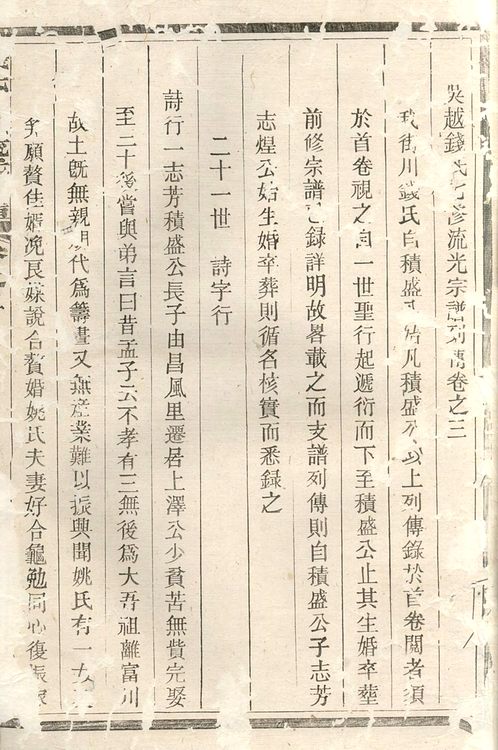 吳越錢氏流光宗譜列傳卷之三
我街川錢氏自積盛公始凡積盛公以上列傳錄於首卷閱者須
於首卷視之自一世聖行起遞衍而下至積盛公止其生婚卒塟
前修宗譜已錄詳明故畧載之而支譜列傳則自積盛公子志芳
志煌公始生婚卒葬則循名核實而悉錄之
二十一世 詩字行
詩行一志芳積盛公長子由昌風里遷居上澤公少貧苦無貲完娶
至二十後嘗與弟言曰昔孟子云不孝有三無後爲大吾祖離富川
故土旣無親朋代爲籌畫又無産業難以振興聞姚氏有一女
願贅佳婿浼良媒說合贅婚姚氏夫妻好合黽勉同心復振家